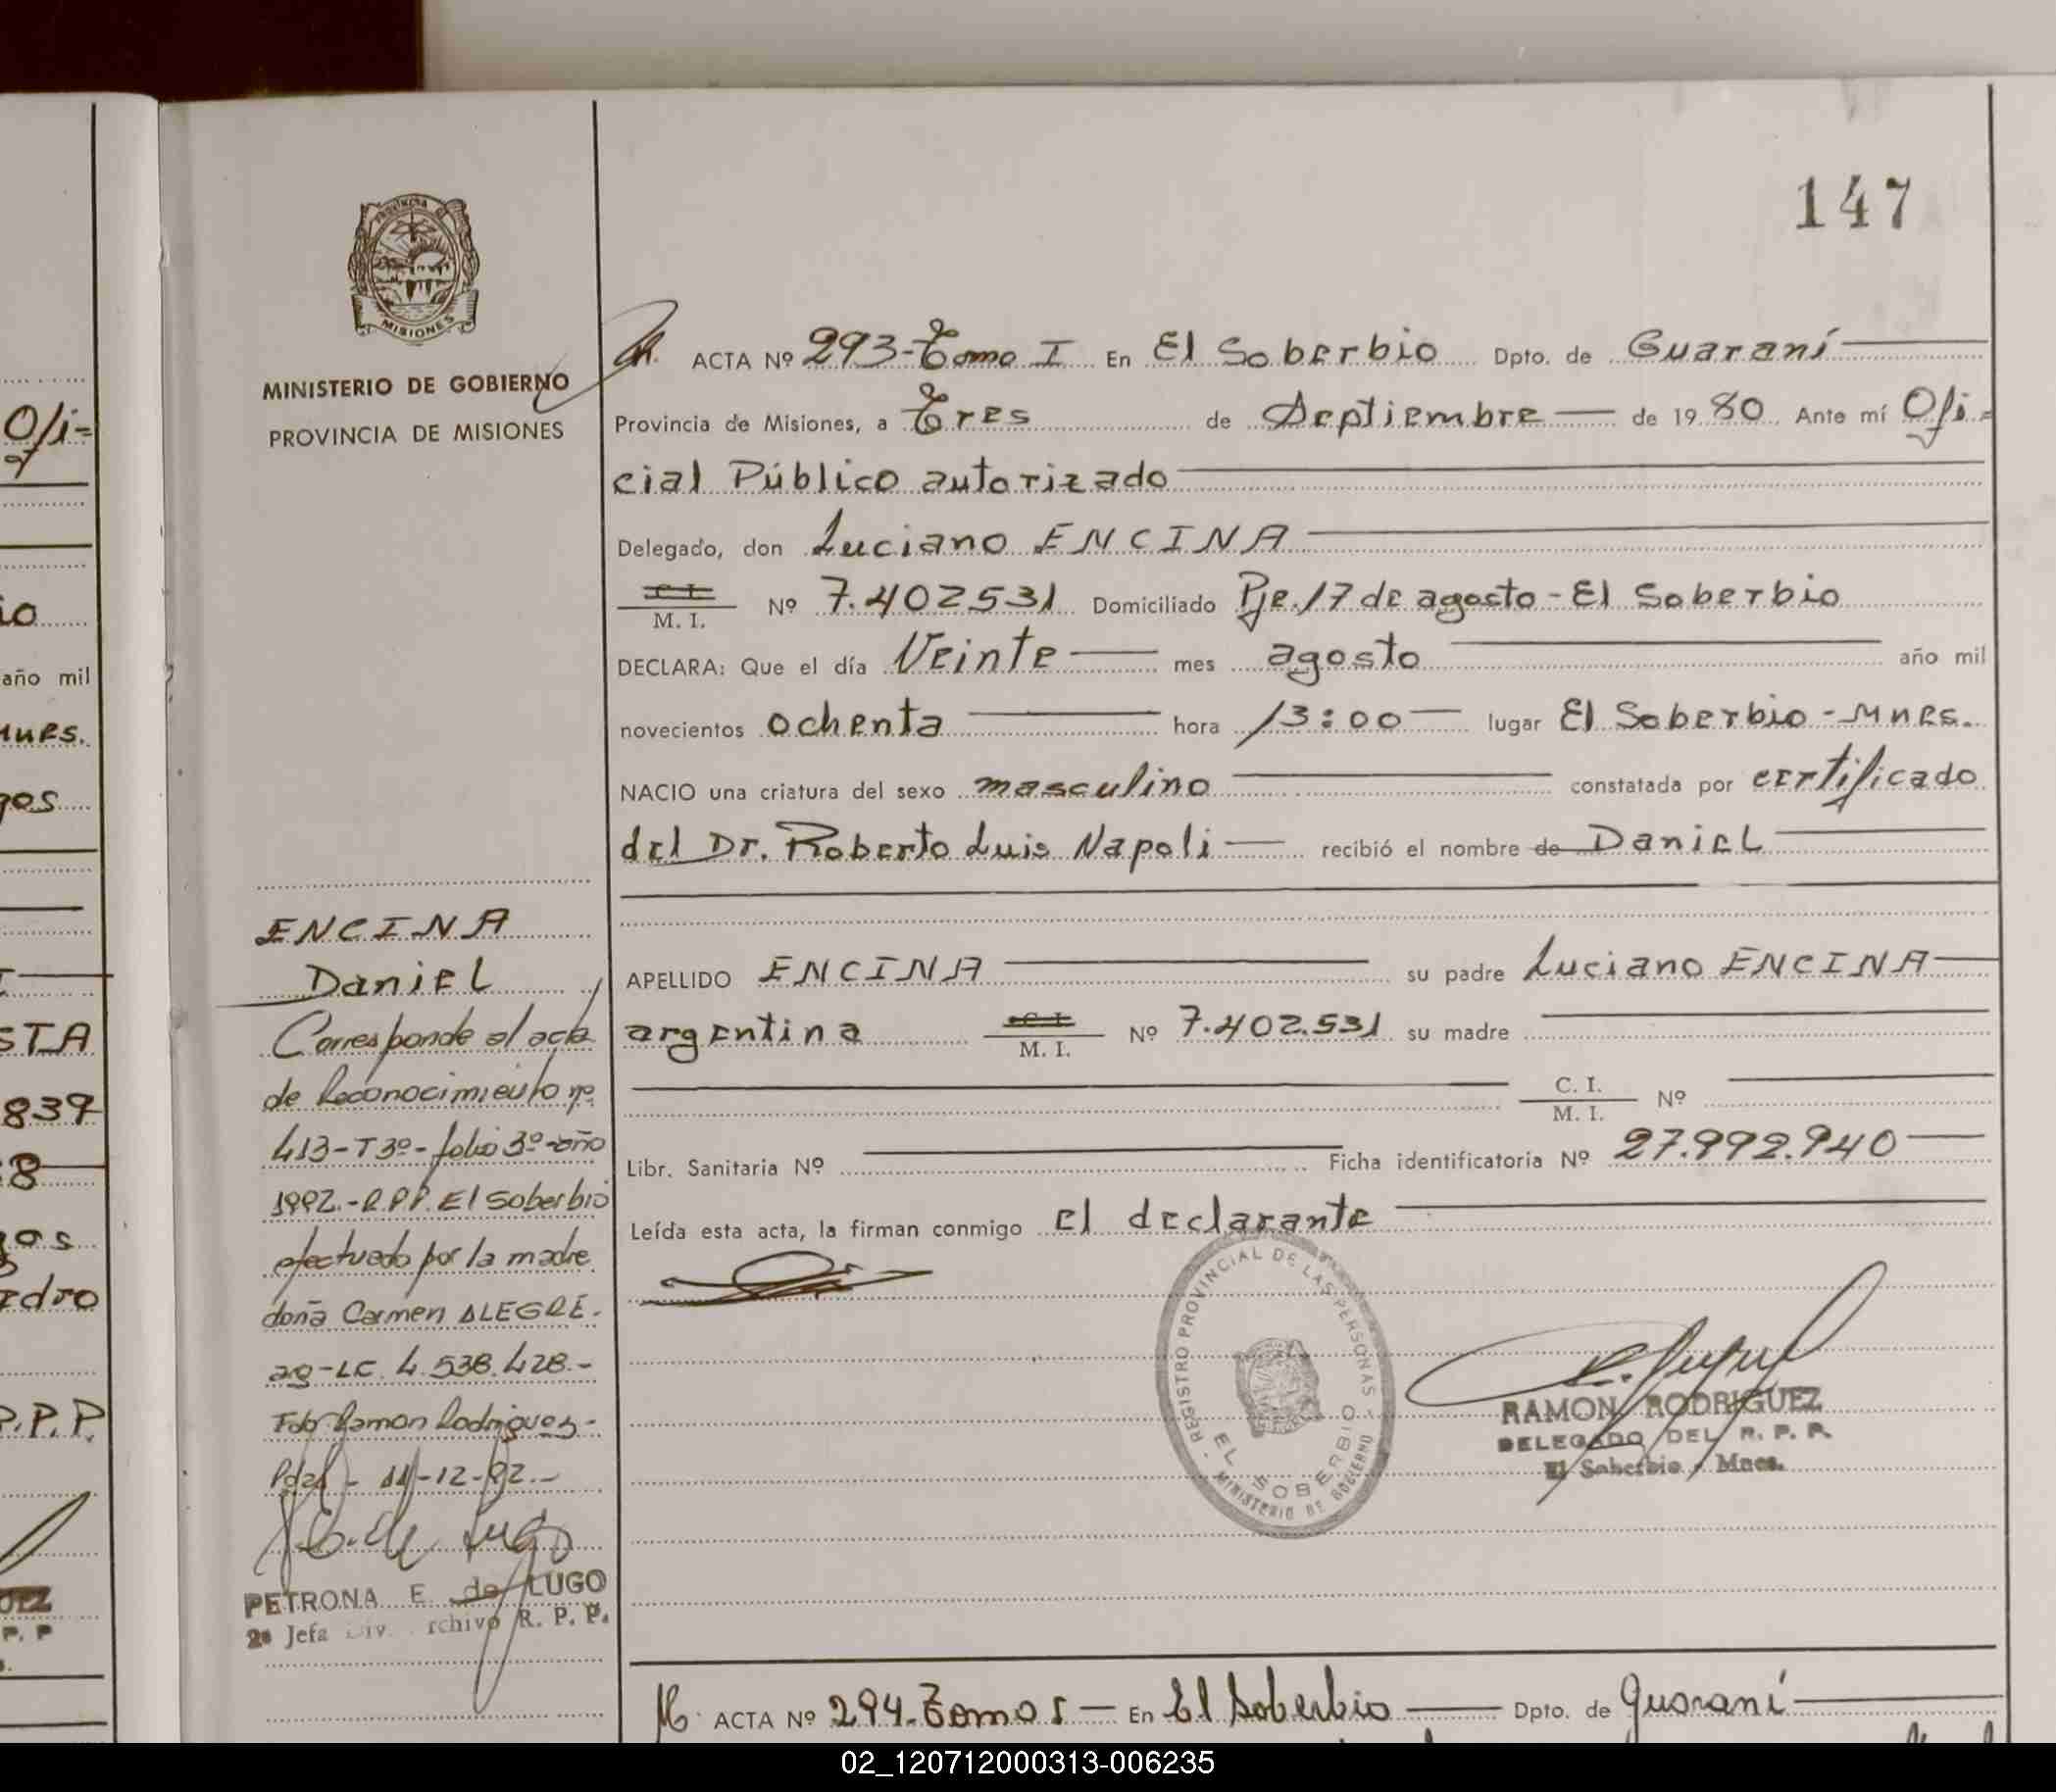 147
PROVINCIA D
MISIONES
MINISTERIO DE GOBIERNO
PROVINCIA DE MISIONES
ACTA Nº 293-Tomo I En El Soberbio Dpto. de Guaraní
Provincia de Misiones, a Tres de Septiembre de 19 80 Ante mí Ofi-
cial Público autorizado
Delegado, don Luciano ENCINA
C. I.
M. I. Nº 7.402531 Domiciliado Pje. 17 de agosto - El Soberbio
DECLARA: Que el día Veinte mes agosto año mil
novecientos ochenta hora 13:00 lugar El Soberbio - Mnes.
NACIO una criatura del sexo masculino constatada por certificado
del Dr. Roberto Luis Napoli recibió el nombre de Daniel
APELLIDO ENCINA su padre Luciano ENCINA
argentina C. I.
M. I. Nº 7.402.531 su madre
C. I.
M. I. Nº
Libr. Sanitaria Nº Ficha identificatoria Nº 27.992.940
Leída esta acta, la firman conmigo el declarante
REGISTRO PROVINCIAL DE LAS PERSONAS
EL SOBERBIO
MINISTERIO DE GOBIERNO
RAMON RODRIGUEZ
DELEGADO DEL R. P. P.
El Soberbio - Mnes.
ENCINA
Daniel
Corresponde al acta
de Reconocimiento nº
413-T3º-folio 3º-año
1992.-R.P.P. El Soberbio
efectuado por la madre
doña Carmen ALEGRE.
ag-LC. 4.538.428.-
Fdo Ramon Rodriguez-
Pdas - 11-12-92.-
PETRONA E. de LUGO
2ª Jefa Div. Archivo R. P. P.
ACTA Nº 294-Tomo I - En El Soberbio Dpto. de Guaraní
Ofi-
io
año mil
Mnes.
gos
STA
839
8
gos
edro
R.P.P.
UEZ
P. P
02_120712000313-006235